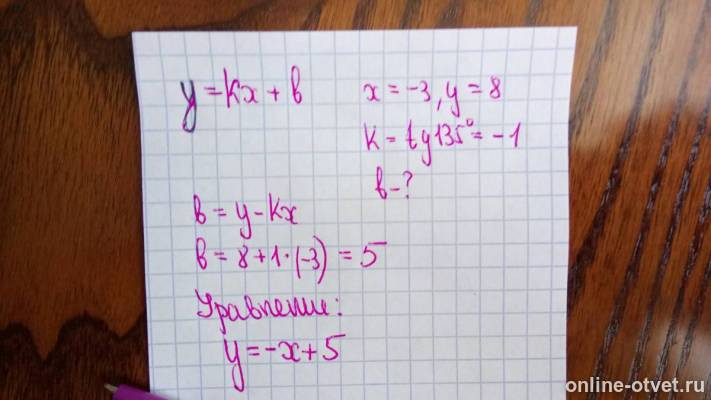 y = kx + b
x = -3, y = 8
k = tg 135° = -1
b - ?
b = y - kx
b = 8 + 1 · (-3) = 5
Уравнение:
y = -x + 5
online-otvet.ru